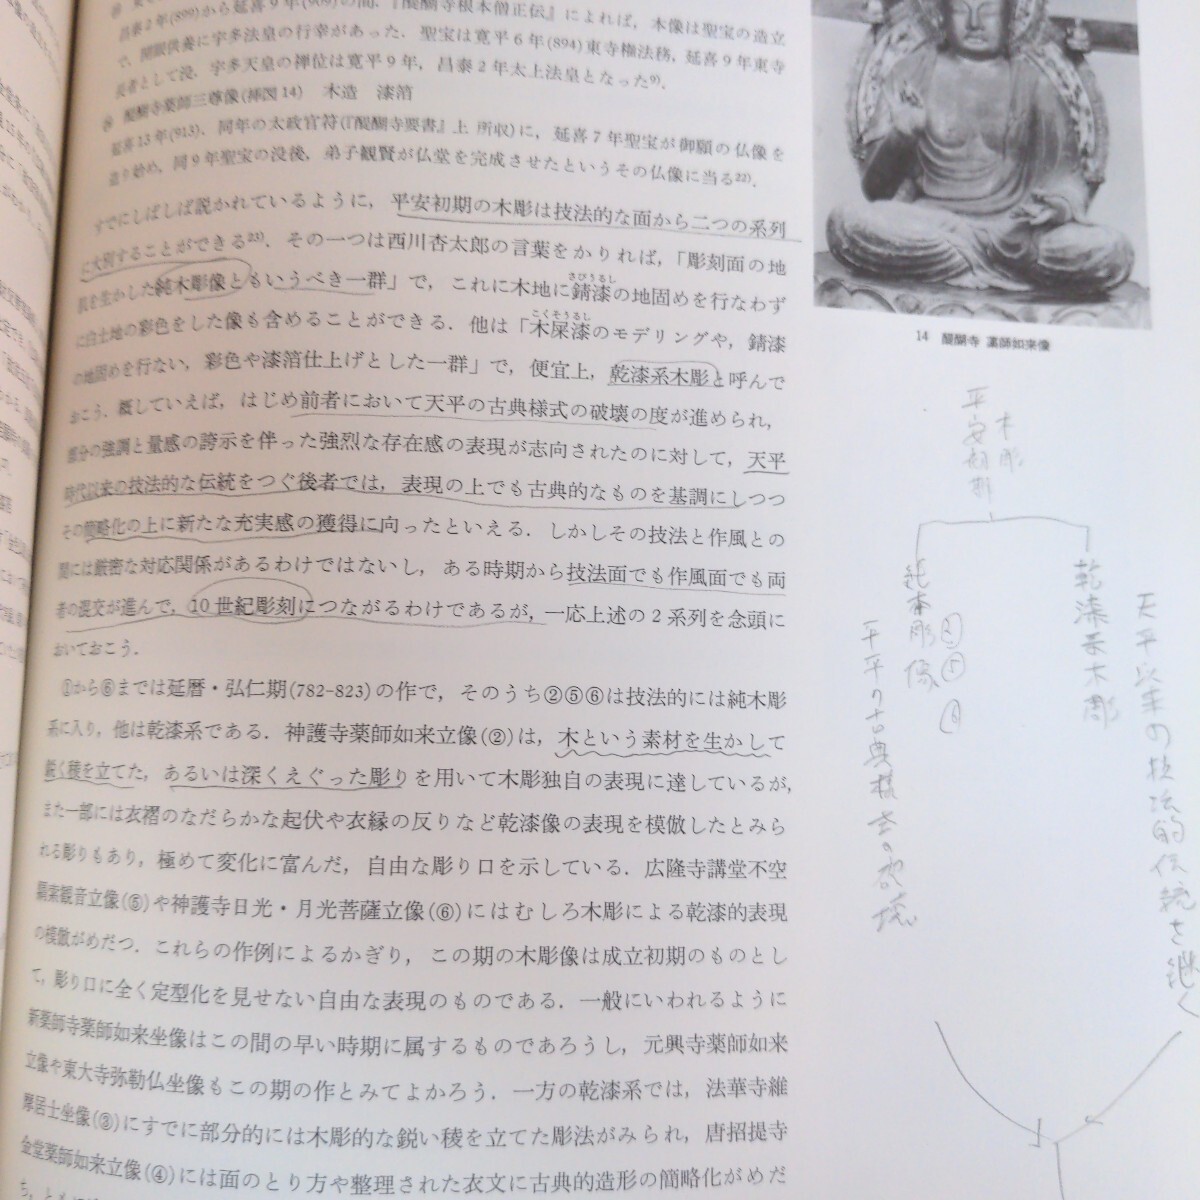 昌泰2年(899)から延喜9年(909)の間．『醍醐寺根本僧正伝』によれば，本像は聖宝の造立
で，開眼供養に宇多法皇の行幸があった．聖宝は寛平6年(894)東寺権法務，延喜9年東寺
長者として没，宇多天皇の禅位は寛平9年，昌泰2年太上法皇となった9)．
醍醐寺薬師三尊像(挿図14)　木造　漆箔
延喜13年(913)．同年の太政官符(『醍醐寺要書』上 所収)に，延喜7年聖宝が御願の仏像を
造り始め，同9年聖宝の没後，弟子観賢が仏堂を完成させたというその仏像に当る22)．
すでにしばしば説かれているように，平安初期の木彫は技法的な面から二つの系列
に大別することができる23)．その一つは西川杏太郎の言葉をかりれば，「彫刻面の地
肌を生かした純木彫像ともいうべき一群」で，これに木地に錆漆の地固めを行なわず
さびうるし
に白土地の彩色をした像も含めることができる．他は「木屎漆のモデリングや，錆漆
こくそうるし
の地固めを行ない，彩色や漆箔仕上げとした一群」で，便宜上，乾漆系木彫と呼んで
おこう．概していえば，はじめ前者において天平の古典様式の破壊の度が進められ，
部分の強調と量感の誇示を伴った強烈な存在感の表現が志向されたのに対して，天平
時代以来の技法的な伝統をつぐ後者では，表現の上でも古典的なものを基調にしつつ
その簡略化の上に新たな充実感の獲得に向ったといえる．しかしその技法と作風との
間には厳密な対応関係があるわけではないし，ある時期から技法面でも作風面でも両
者の混交が進んで，10世紀彫刻につながるわけであるが，一応上述の2系列を念頭に
おいておこう．
①から⑥までは延暦・弘仁期(782-823)の作で，そのうち②⑤⑥は技法的には純木彫
系に入り，他は乾漆系である．神護寺薬師如来立像(②)は，木という素材を生かして
鋭く稜を立てた，あるいは深くえぐった彫りを用いて木彫独自の表現に達しているが，
また一部には衣褶のなだらかな起伏や衣縁の反りなど乾漆像の表現を模倣したとみら
れる彫りもあり，極めて変化に富んだ，自由な彫り口を示している．広隆寺講堂不空
羂索観音立像(⑤)や神護寺日光・月光菩薩立像(⑥)にはむしろ木彫による乾漆的表現
の模倣がめだつ．これらの作例によるかぎり，この期の木彫像は成立初期のものとし
て，彫り口に全く定型化を見せない自由な表現のものである．一般にいわれるように
新薬師寺薬師如来坐像はこの間の早い時期に属するものであろうし，元興寺薬師如来
立像や東大寺弥勒仏坐像もこの期の作とみてよかろう．一方の乾漆系では，法華寺維
摩居士坐像(③)にすでに部分的には木彫的な鋭い稜を立てた彫法がみられ，唐招提寺
金堂薬師如来立像(④)には面のとり方や整理された衣文に古典的造形の簡略化がめだ
14　醍醐寺 薬師如来像
木彫
平安初期
乾漆系木彫
天平以来の技法的伝統を継ぐ
純木彫像
②⑤⑥
天平の古典様式の破壊